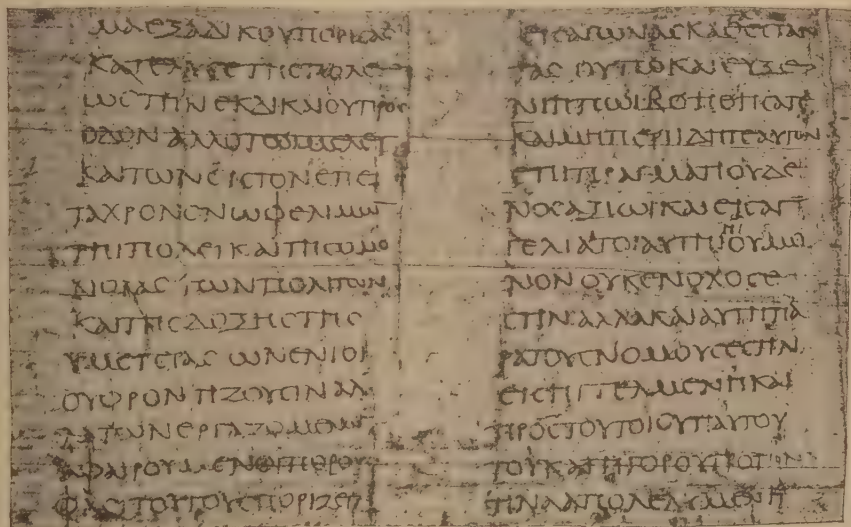 ΜΑΕΞΑΔΙΚΟΥΠΟΡΙΣΑΣ
ΚΑΤΕΛΥΣΕΤΗΣΠΟΛΕ
ΩΣΤΗΝΕΚΔΙΚΑΙΟΥΠΡΟΣ
ΟΔΟΝ
ΚΑΙΤΩΝΕΙΣΤΟΝΕΠΕΙ
ΤΑΧΡΟΝΟΝΩΦΕΛΙΜΩ
ΤΗΙΠΟΛΕΙΚΑΙΤΗΣΟΜΟ
ΝΟΙΑΣΤΩΝΠΟΛΙΤΩΝ
ΚΑΙΤΗΣΔΟΞΗΣΤΗΣ
ΥΜΕΤΕΡΑΣΩΝΕΝΙΟΙ
ΟΥΦΡΟΝΤΙΖΟΥΣΙΝΑΛ
ΛΑΤΩΝΕΡΓΑΖΟΜΕΝΩ
ΑΦΑΙΡΟΥΜΕΝΟΙ
ΦΑΣΙΤΟΥΤΟΥΣΠΟΡΙΖΕΙ
ΕΙΣΑΓΩΝΑΣΚΑΘΙΣΤΑΝ
ΤΑΣ ΚΑΙΕΥΞΕ
ΝΙΠΠΩΙΒΟΗΘΗΣΑΤΕ
ΚΑΙΜΗΠΕΡΙΙΔΗΤΕΑΥΤΟΝ
ΕΠΙΠΡΑΓΜΑΤΙΟΥΔΕ
ΝΟΣΑΞΙΩΙΚΑΙΕΙΣΑΓ
ΓΕΛΙΑΤΟΙΑΥΤΗΙΗΙΟΥΜΟ
ΝΟΝΟΥΚΕΝΟΧΟΣΕ
ΣΤΙΝΑΛΛΑΚΑΙΑΥΤΗΠΑ
ΡΑΤΟΥΣΝΟΜΟΥΣΕΣΤΙΝ
ΕΙΣΗΓΓΕΛΜΕΝΗΚΑΙ
ΠΡΟΣΤΟΥΤΟΙΣΥΠΑΥΤΟΥ
ΤΟΥΚΑΤΗΓΟΡΟΥΤΡΟΠΟΝ
ΤΙΝΑΑΠΟΛΕΛΥΜΕΝΗ